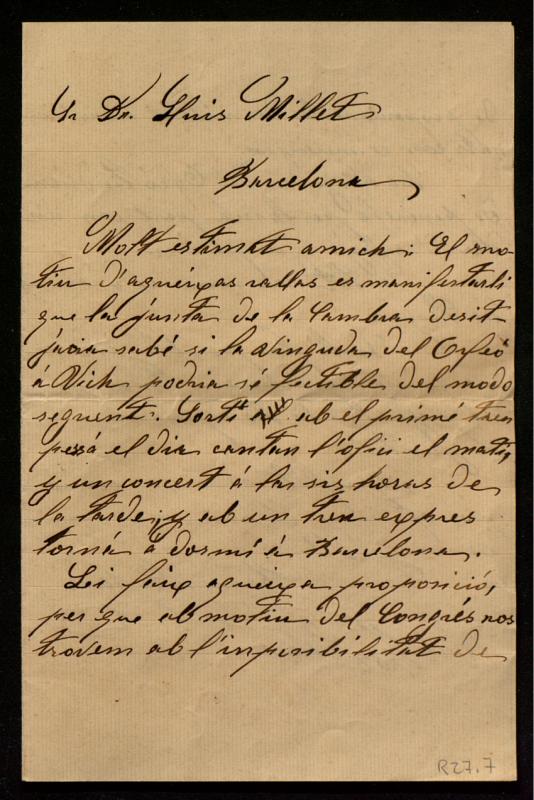 Sr Dn. Lluis Millet
Barcelona
Molt estimat amich: El mo-
tiu d'aqueixas rallas es manifestarli
que la junta de la Cambra desit
jaria sabé si la vinguda del Orfeó
á Vich podria sé factible del modo
seguent. Sortí ab el primé tren
pera el dia cantan l'ofici el matí,
y un concert á las sis horas de
la tarde; y ab un tren expres
torná á dormí á Barcelona.
Li faix aqueixa proposició,
per que ab motiu del Congrés nos
trovem ab l'imposibilitat de
R27.7